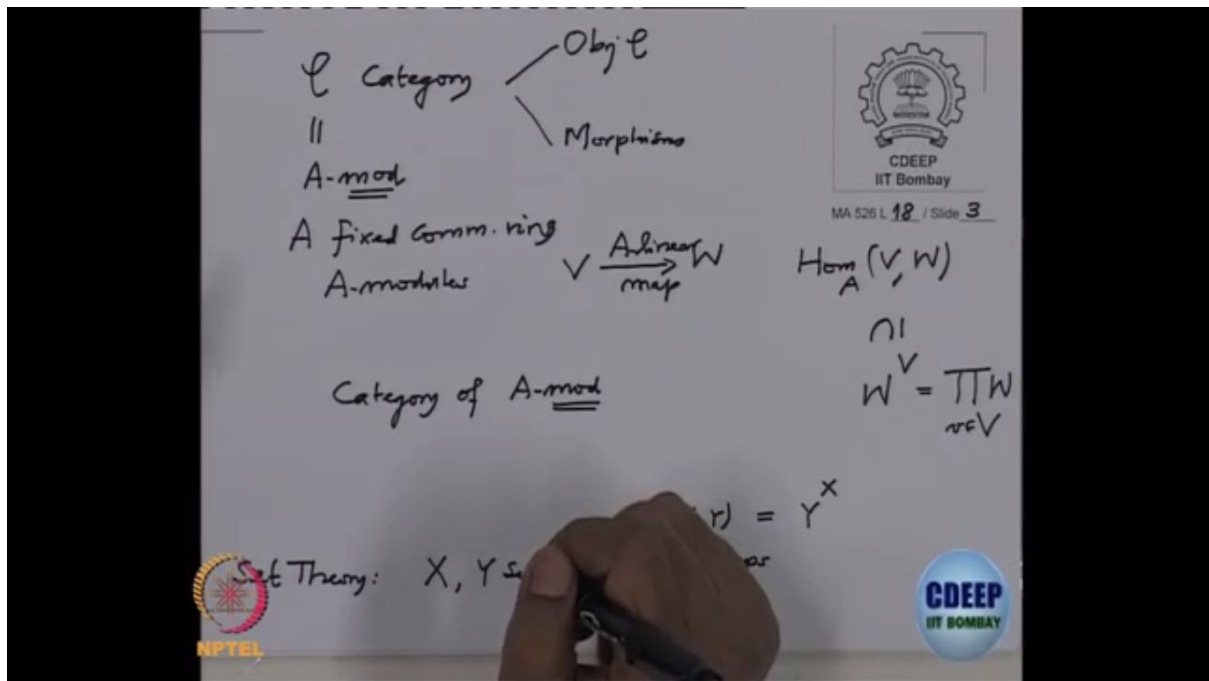 𝒞 Category
Obj 𝒞
Morphisms
||
A-mod
A fixed comm. ring
A-modules
V A-linear map → W
Hom_A (V, W)
∩|
W^V = ∏ W
v∈V
Category of A-mod
Y) = Y^X
Set Theory: X, Y
CDEEP
IIT Bombay
MA 526 L 18 / Slide 3
NPTEL
CDEEP
IIT BOMBAY